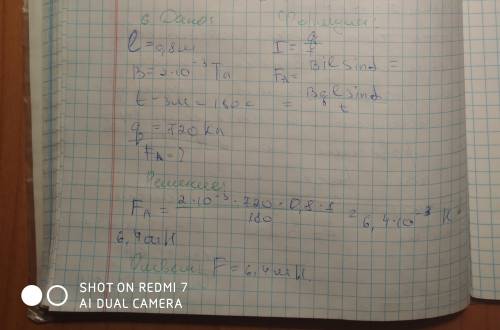 6. Дано: Формулы:
l = 0,8 м I = q/t
B = 2·10⁻³ Тл FA = BIl sinα =
t - 3м = 180с = Bql sinα / t
q = 720 Кл
FA = ?
Решение:
FA = 2·10⁻³·720·0,8·1 / 180 = 6,4·10⁻³ Н =
6,4 мН
Ответ: F = 6,4 мН
SHOT ON REDMI 7
AI DUAL CAMERA